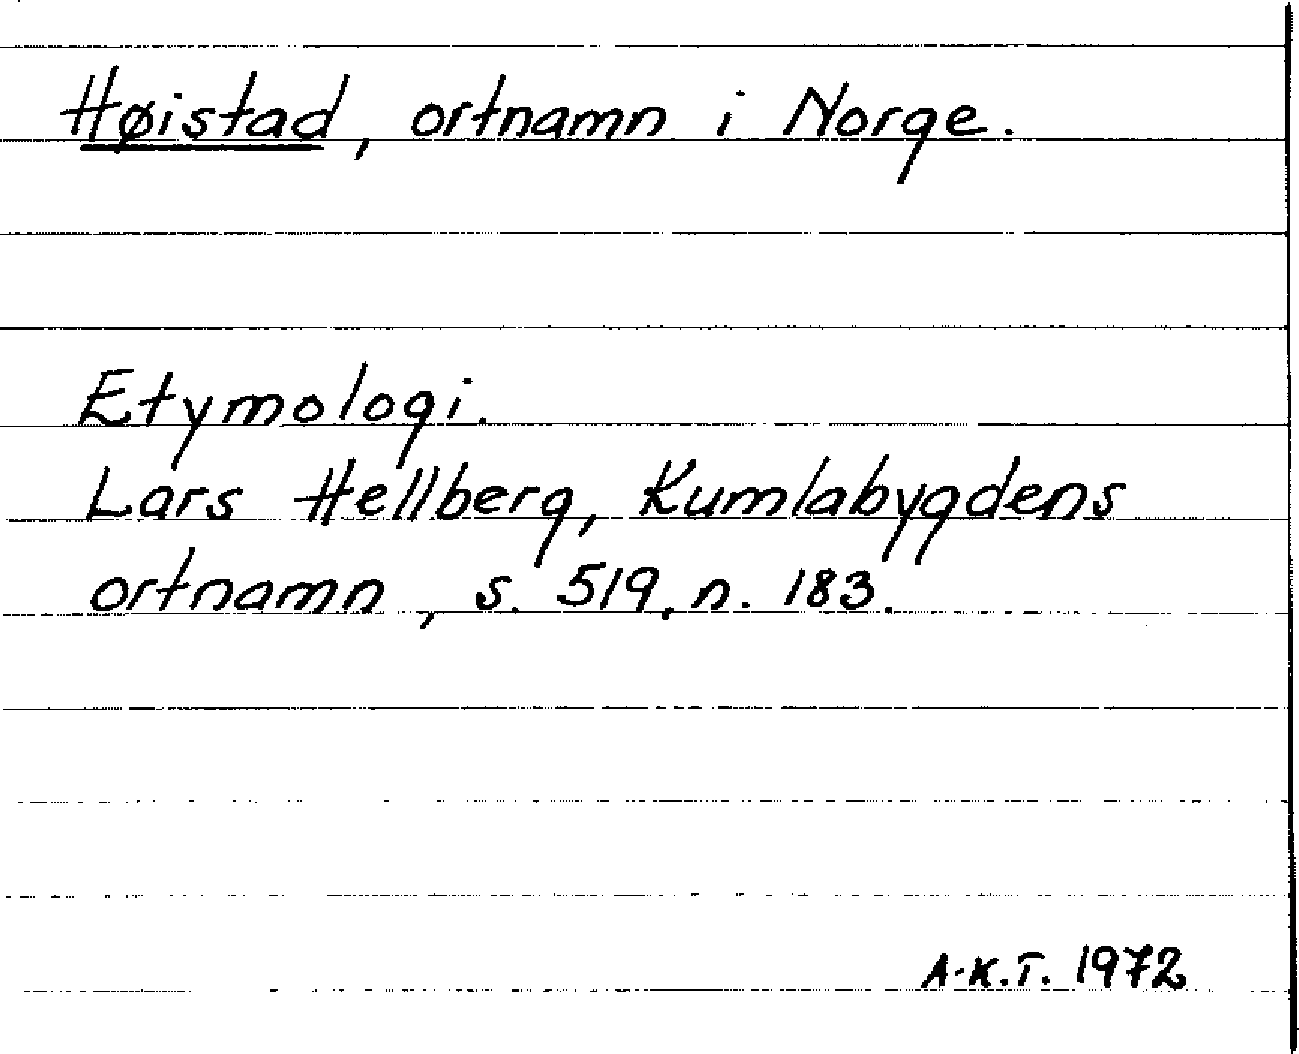 Høistad, ortnamn i Norge.
Etymologi.
Lars Hellberg, Kumlabygdens
ortnamn, s. 519, n. 183.
A-K.T. 1972